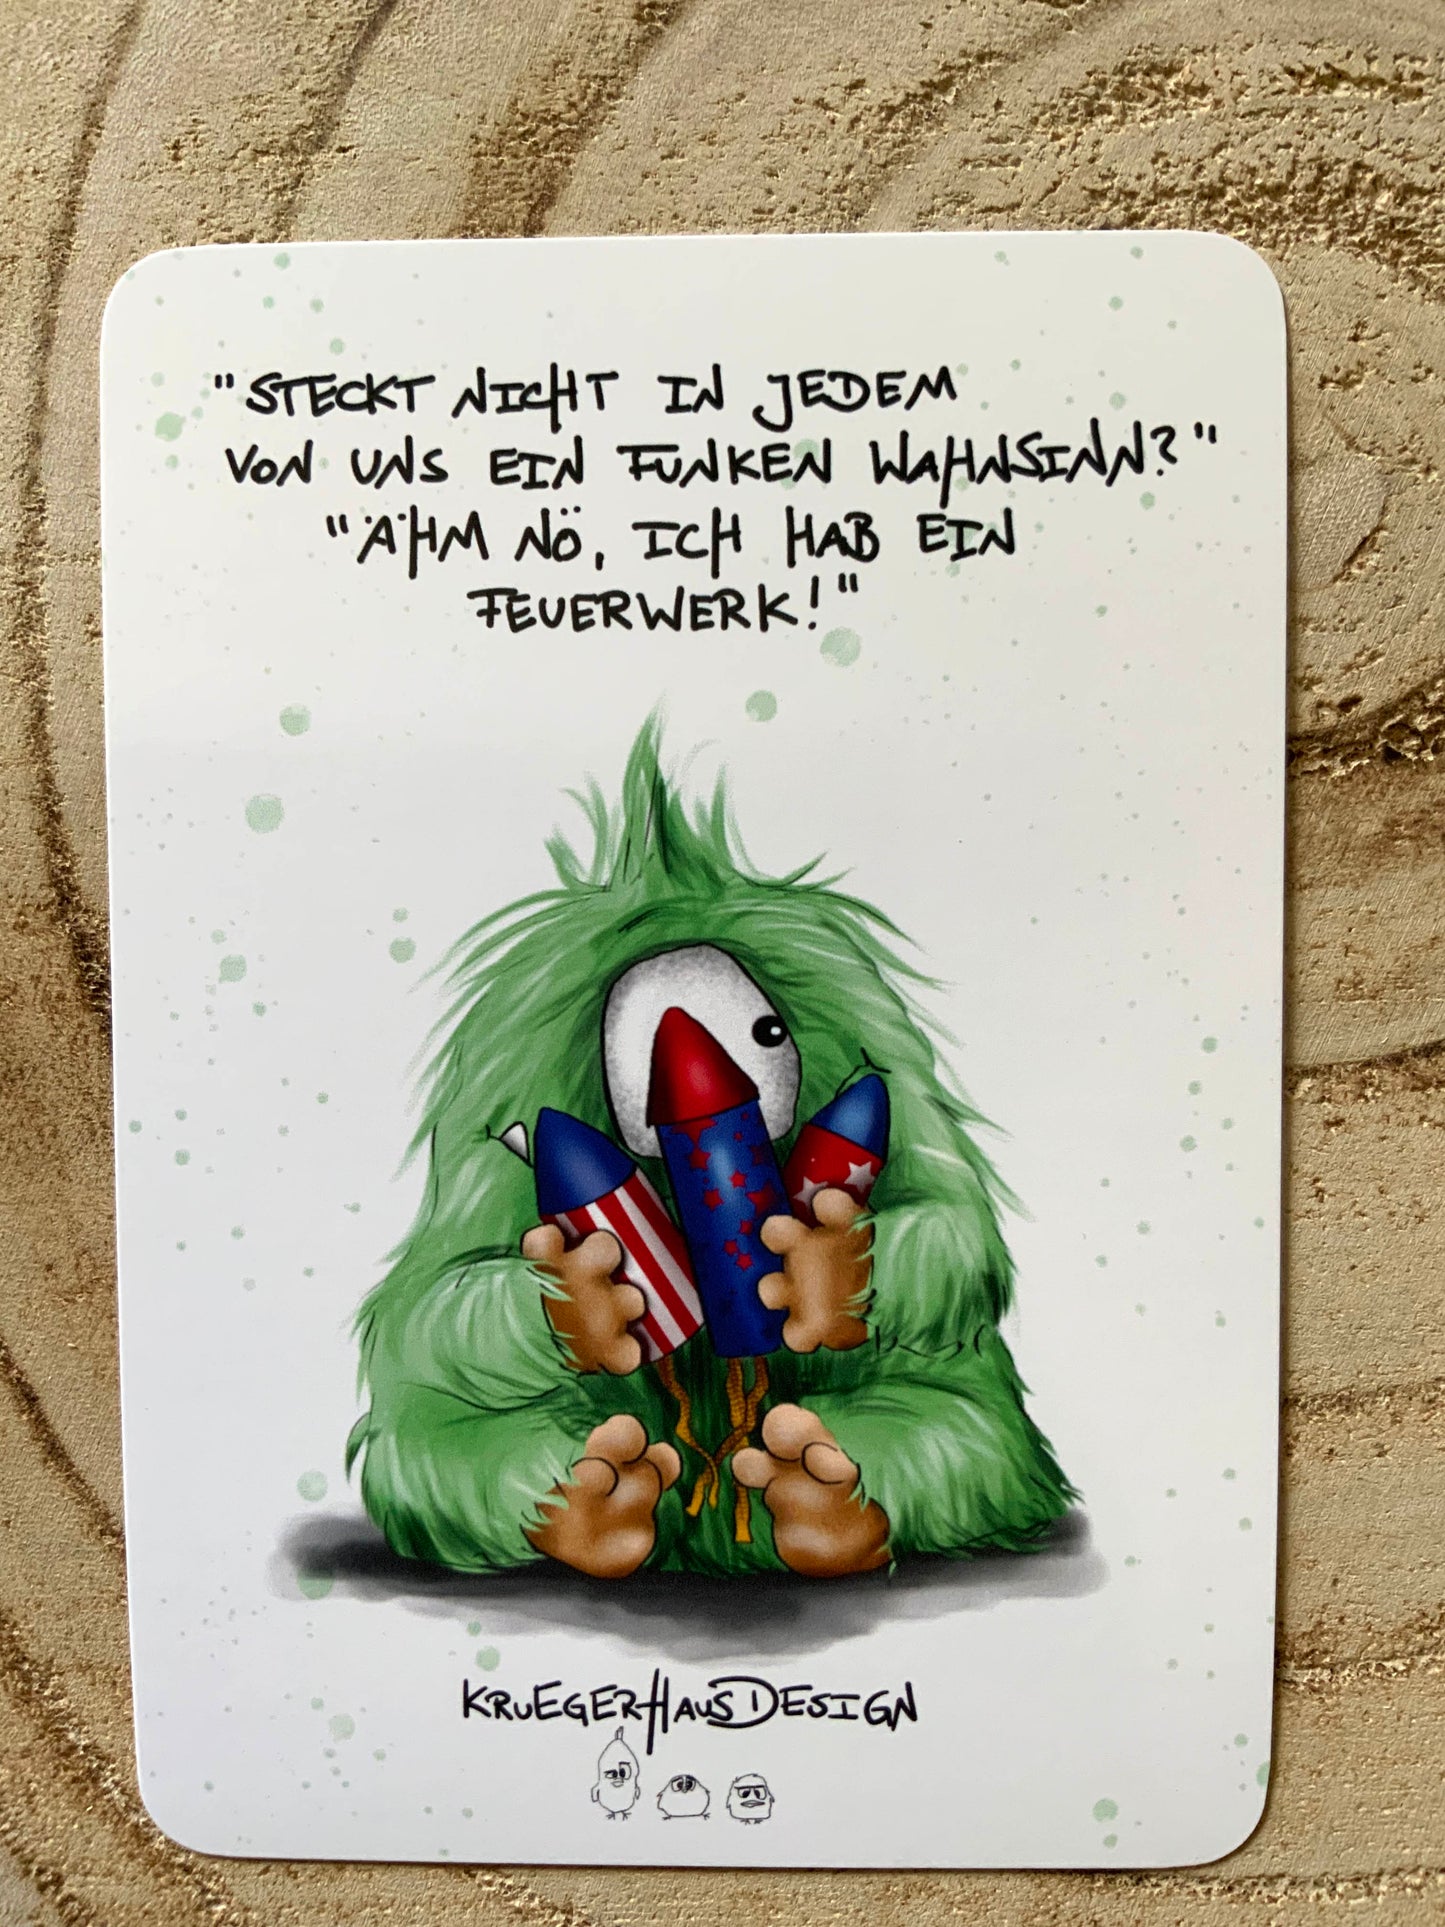 "STECKT NICHT IN JEDEM
VON UNS EIN FUNKEN WAHNSINN?"
"ÄHM NÖ, ICH HAB EIN
FEUERWERK!"
KRUEGERHAUSDESIGN